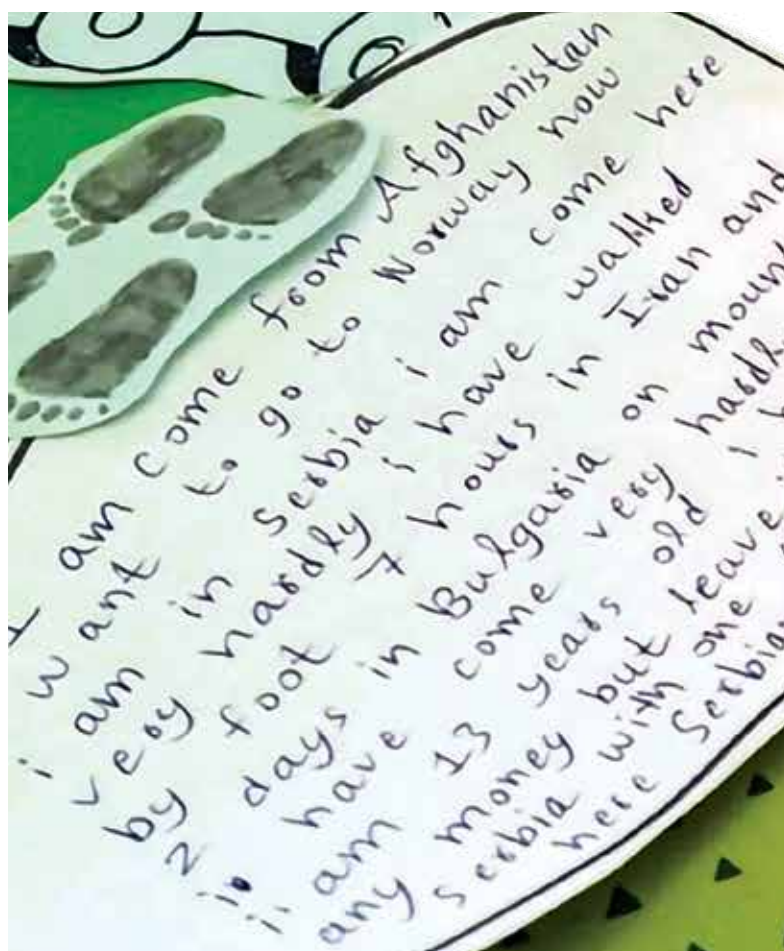 I am come from Afghanistan
want to go to Norway now
i am in Serbia i am come here
very hardly i have walked
by foot 7 hours in Iran and
2 days in Bulgaria on
i have come very
i am 13 years old i
any money but leave
Serbia with one
here Serbia